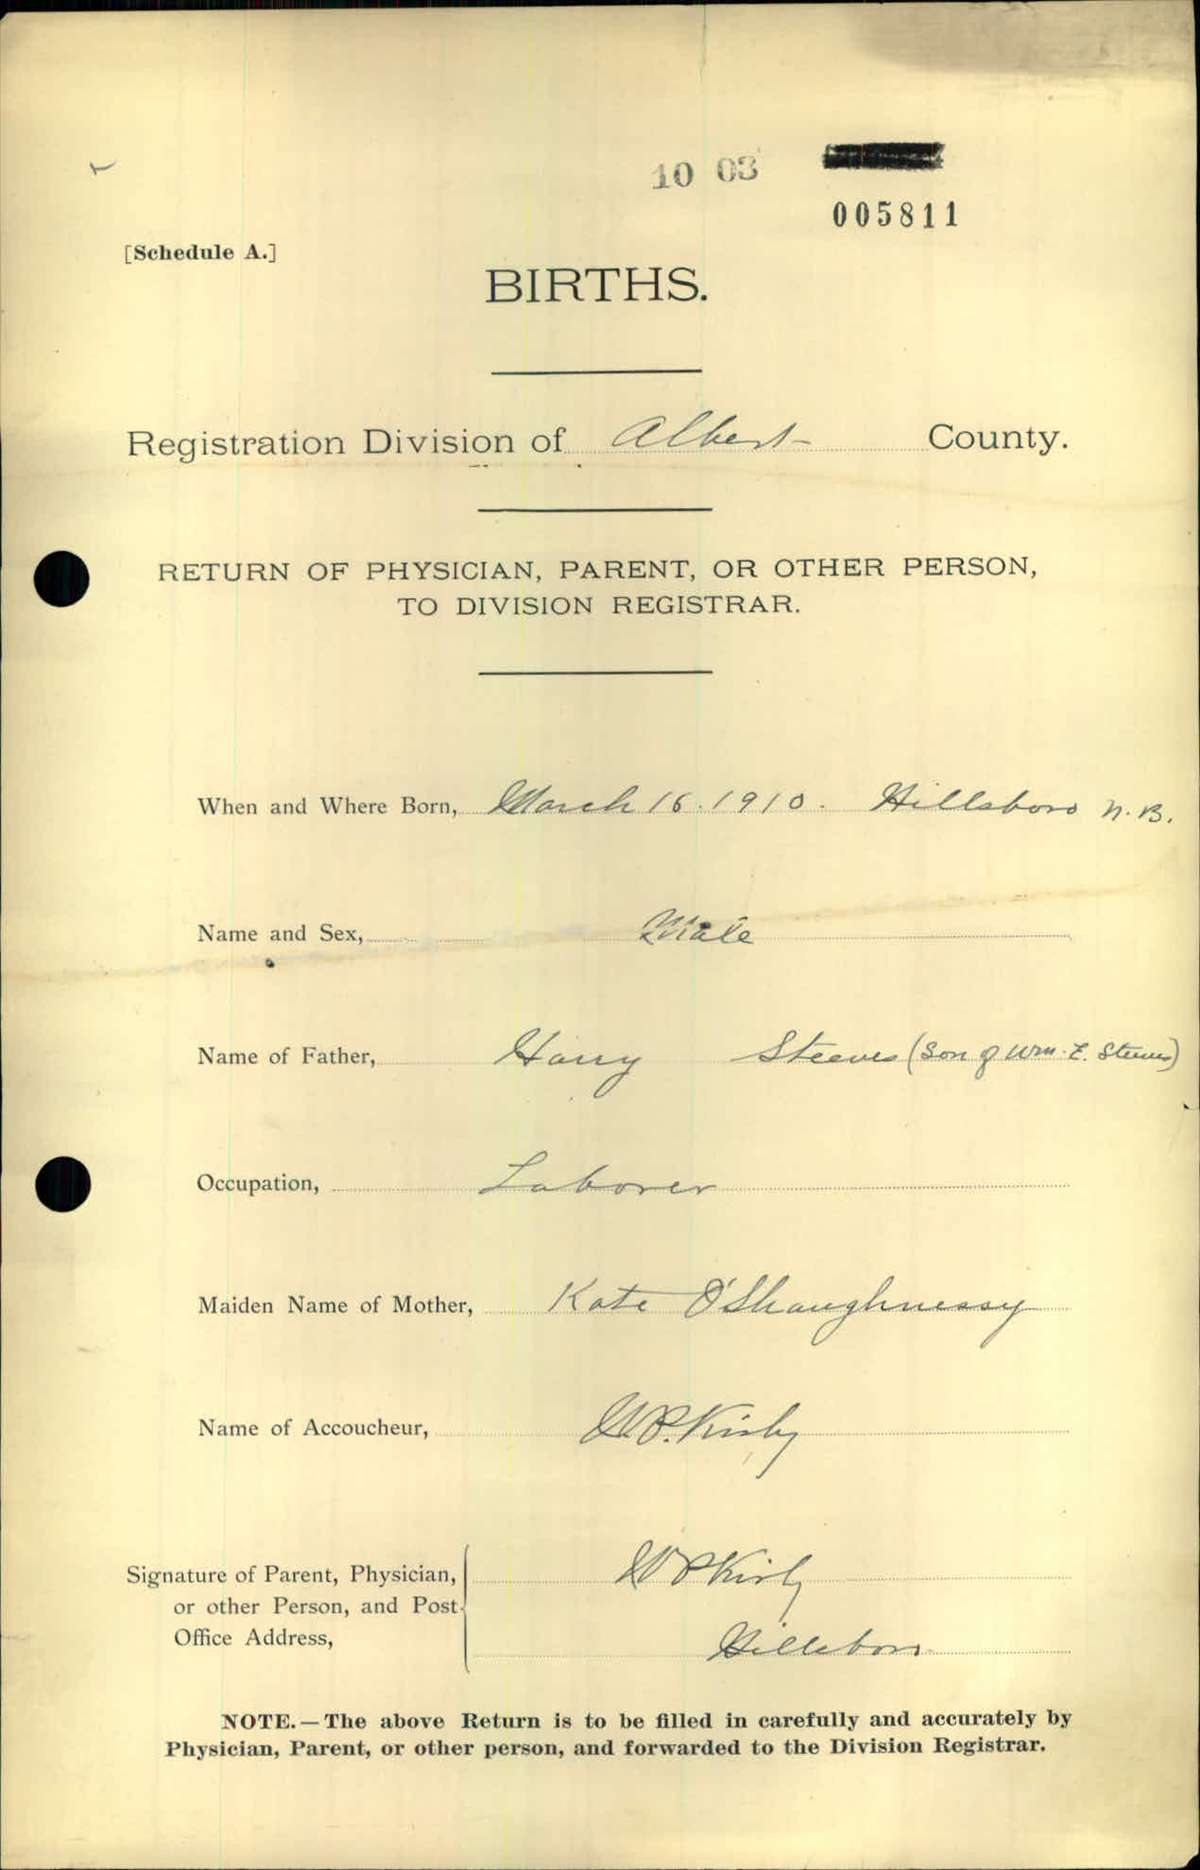 10 03
005811
[Schedule A.]
BIRTHS.
Registration Division of Albert County.
RETURN OF PHYSICIAN, PARENT, OR OTHER PERSON,
TO DIVISION REGISTRAR.
When and Where Born, March 16. 1910. Hillsboro N.B.
Name and Sex, Male
Name of Father, Harry Steeves (Son of Wm. E. Steeves)
Occupation, Laborer
Maiden Name of Mother, Kate O'Shaughnessy
Name of Accoucheur, W.P. Kirby
Signature of Parent, Physician, W P Kirby
or other Person, and Post
Office Address, Hillsboro
NOTE.—The above Return is to be filled in carefully and accurately by
Physician, Parent, or other person, and forwarded to the Division Registrar.